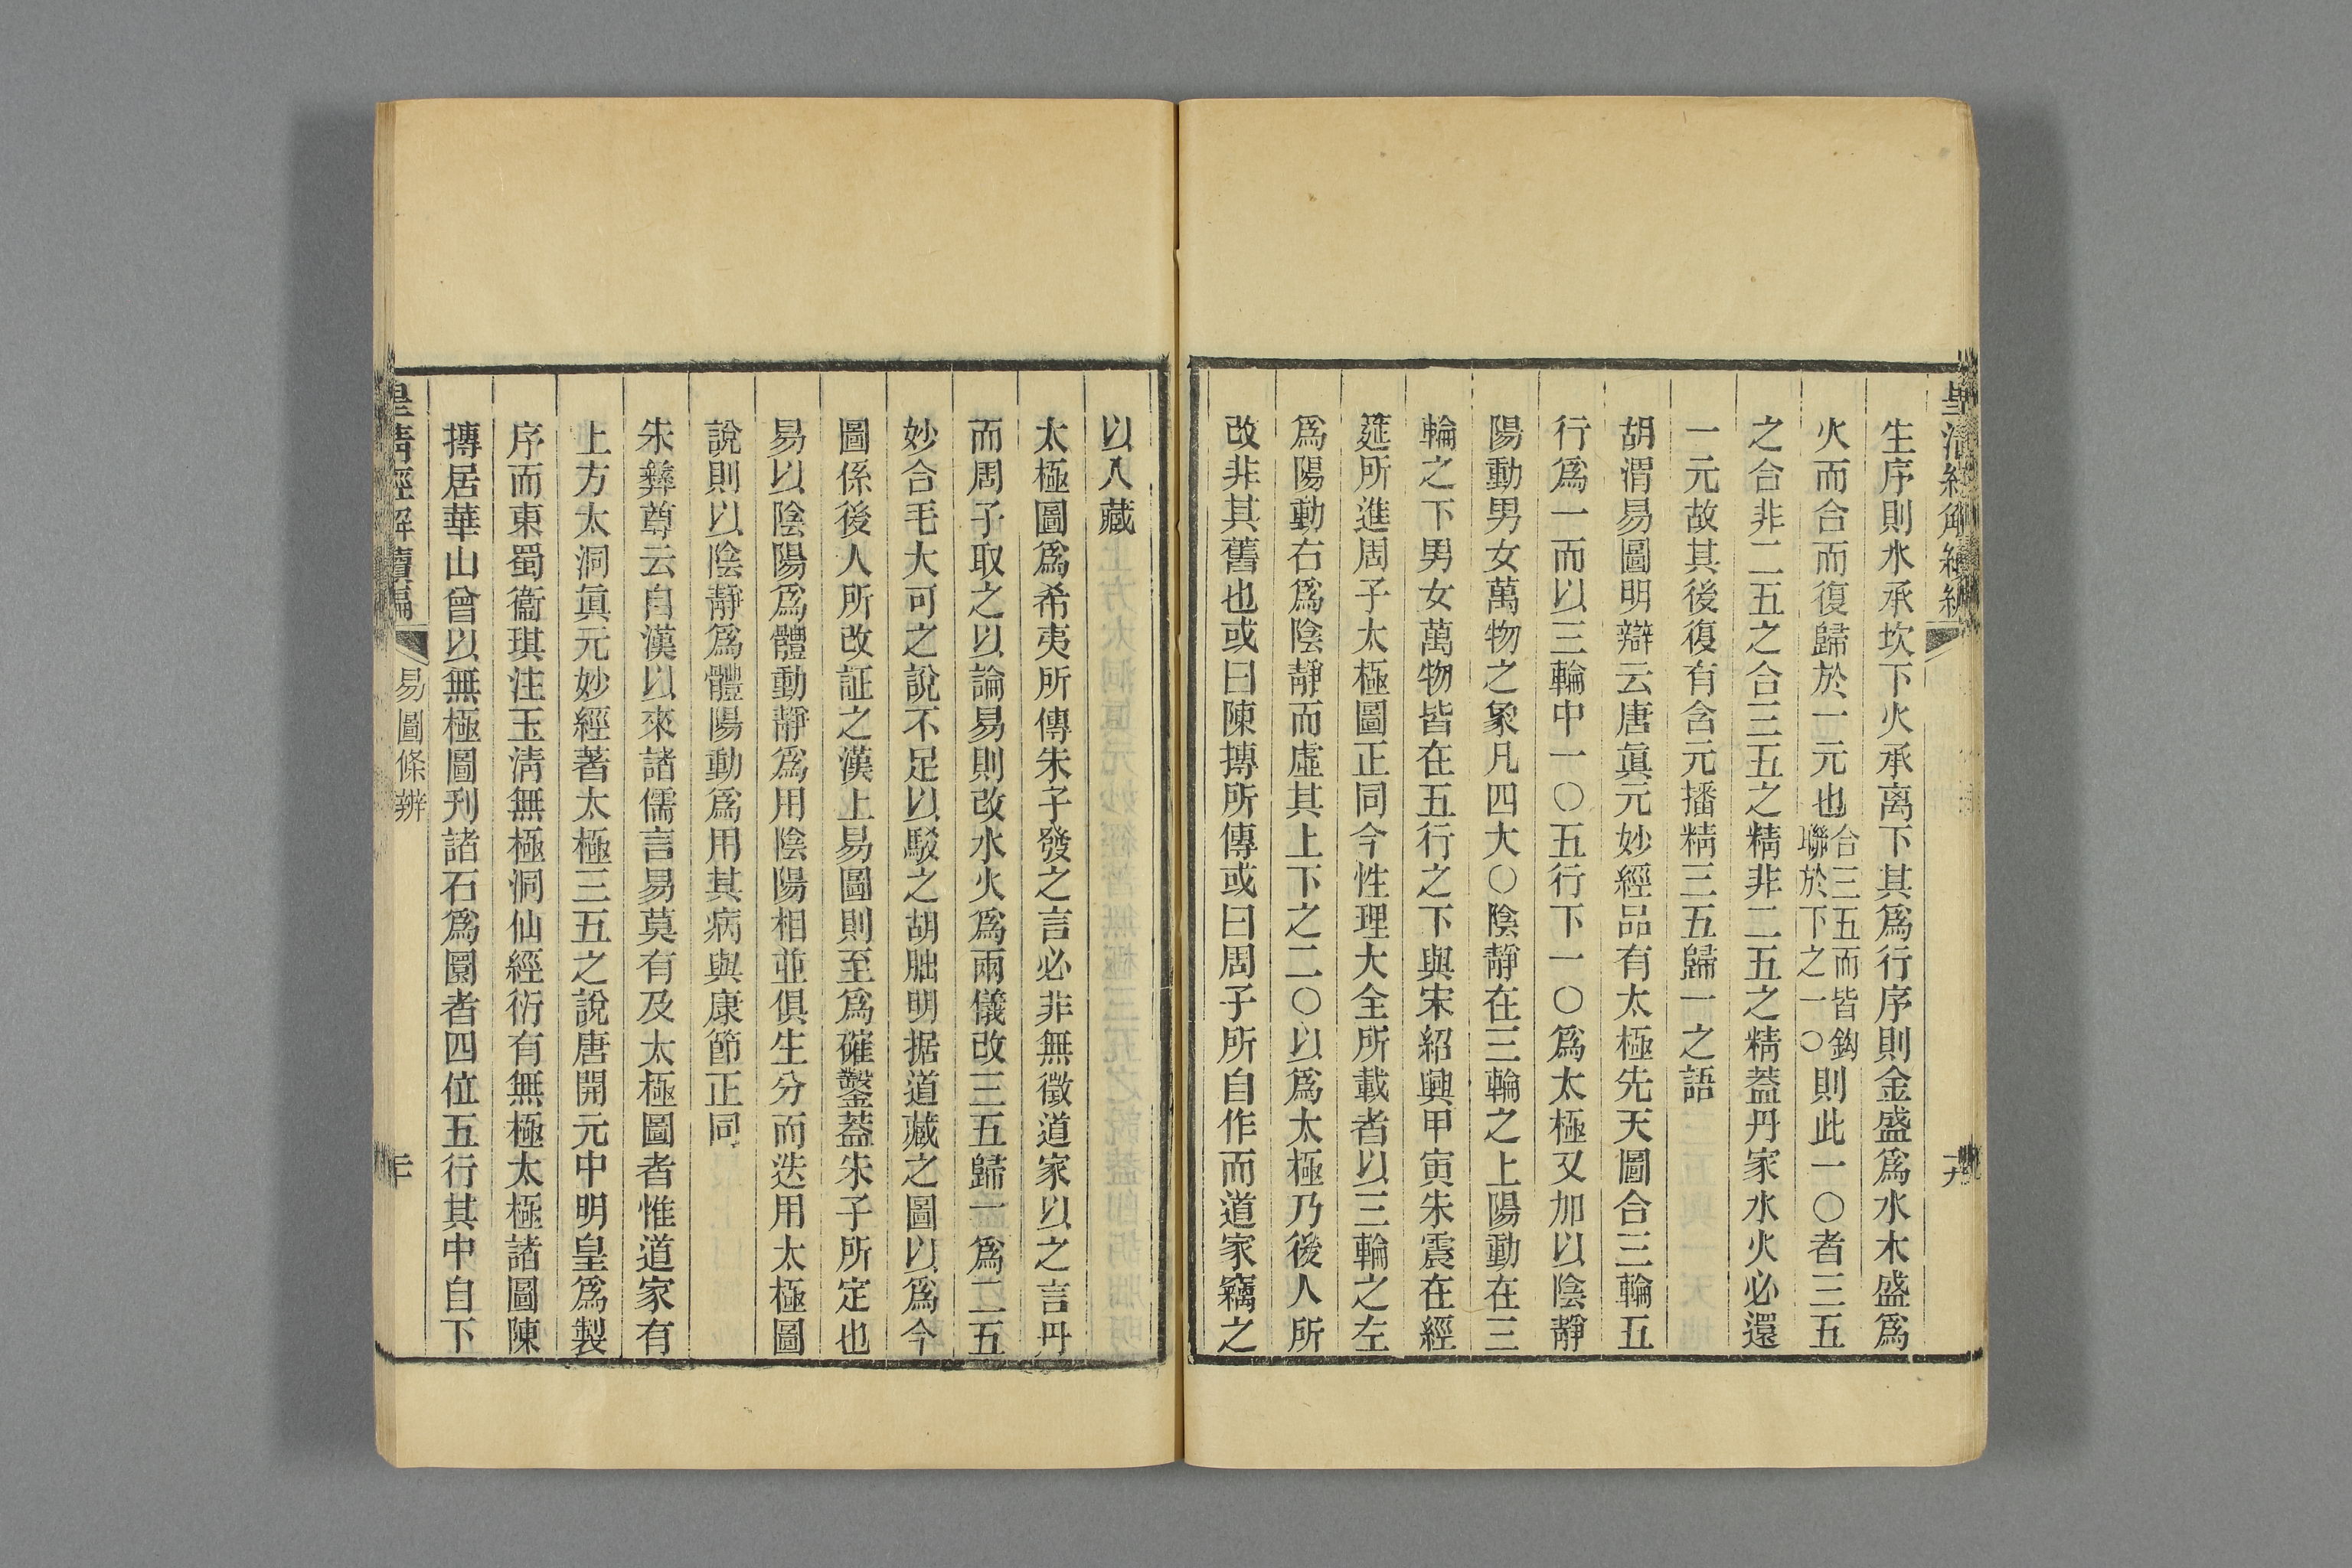 皇清經解續編
十九
生序則水承坎下火承离下其爲行序則金盛爲水木盛爲
火而合而復歸於一元也合三五而皆鈎聯於下之一〇則此一〇者三五
之合非二五之合三五之精非二五之精蓋丹家水火必還
一元故其後復有含元播精三五歸一之語
胡渭易圖明辯云唐眞元妙經品有太極先天圖合三輪五
行爲一而以三輪中一〇五行下一〇爲太極又加以陰靜
陽動男女萬物之象凡四大〇陰靜在三輪之上陽動在三
輪之下男女萬物皆在五行之下與宋紹興甲寅朱震在經
筵所進周子太極圖正同今性理大全所載者以三輪之左
爲陽動右爲陰靜而虛其上下之二〇以爲太極乃後人所
改非其舊也或曰陳摶所傳或曰周子所自作而道家竊之
以入藏
太極圖爲希夷所傳朱子發之言必非無徵道家以之言丹
而周子取之以論易則改水火爲兩儀改三五歸一爲二五
妙合毛大可之說不足以駁之胡朏明据道藏之圖以爲今
圖係後人所改証之漢上易圖則至爲確鑿蓋朱子所定也
易以陰陽爲體動靜爲用陰陽相並俱生分而迭用太極圖
說則以陰靜爲體陽動爲用其病與康節正同
朱彝尊云自漢以來諸儒言易莫有及太極圖者惟道家有
上方大洞眞元妙經著太極三五之說唐開元中明皇爲製
序而東蜀衞琪注玉清無極洞仙經衍有無極太極諸圖陳
摶居華山曾以無極圖刋諸石爲圜者四位五行其中自下
皇清經解續編
易圖條辨
二十